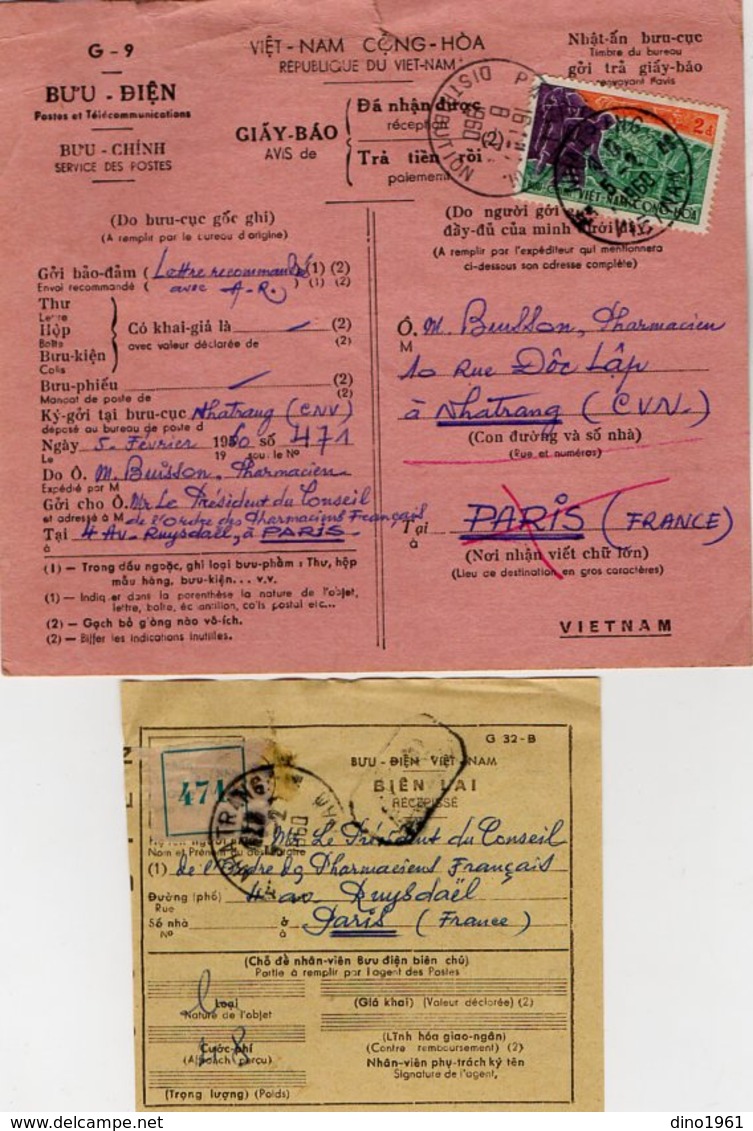 G - 9
BƯU - ĐIỆN
Postes et Télécommunications
BƯU - CHÍNH
SERVICE DES POSTES
VIỆT - NAM CỘNG - HÒA
REPUBLIQUE DU VIET-NAM
GIẤY-BÁO
AVIS de
Đã nhận được
réception
(2)
Trả tiền rồi
paiement
Nhật-ấn bưu-cục
Timbre du bureau
gởi trả giấy-báo
renvoyant l'avis
2đ
VIỆT-NAM CỘNG-HÒA
(Do bưu-cục gốc ghi)
(A remplir par le bureau d'origine)
Gởi bảo-đảm ( Lettre recommandée (1) (2)
Envoi recommandé ( avec A-R.) (1) (2)
Thư
Lettre
Hộp
Boîte
Bưu-kiện
Colis
Có khai-giá là (2)
avec valeur déclarée de (2)
Bưu-phiếu (2)
Mandat de poste de (2)
Ký-gởi tại bưu-cục Nhatrang (CNV)
déposé au bureau de poste d
Ngày 5 Février 1960 số 471
Le 19 sous le No
Do Ô. M. Buisson, Pharmacien
Expédié par M
Gởi cho Ô. Mr Le Président du Conseil
et adressé à M de l'Ordre des Pharmaciens Français
Tại 4 Av. Ruysdaël, à PARIS
à
(1) — Trong dấu ngoặc, ghi loại bưu-phẩm : Thư, hộp
mẫu hàng, bưu-kiện... v.v.
(1) — Indiquer dans la parenthèse la nature de l'objet,
lettre, boîte, échantillon, colis postal etc...
(2) — Gạch bỏ giòng nào vô-ích.
(2) — Biffer les indications inutiles.
(Do người gởi
đầy-đủ của mình dưới đây)
(A remplir par l'expéditeur qui mentionnera
ci-dessous son adresse complète)
Ô. M. Buisson, Pharmacien
M
10 Rue Dôc Lâp
à Nhatrang (CVN.)
(Con đường và số nhà)
(Rue et numéros)
Tại PARIS (FRANCE)
à
(Nơi nhận viết chữ lớn)
(Lieu de destination en gros caractères)
VIETNAM
G 32-B
BƯU - ĐIỆN VIỆT - NAM
BIÊN LAI
RÉCÉPISSÉ
471
NHATRANG
Mr Le Président du Conseil
Nom et Prénom du destinataire
(1) de l'Ordre des Pharmaciens Français
Đường (phố) 4 av Ruysdaël
Rue
Số nhà ở Paris (France)
No à
(Chỗ để nhân-viên Bưu điện biên chú)
Partie à remplir par l'agent des Postes
Loại
Nature de l'objet
(Giá khai) (Valeur déclarée) (2)
Cước-phí
(Affranch perçu)
(Lĩnh hóa giao-ngân)
(Contre remboursement) (2)
Nhân-viên phụ-trách ký tên
Signature de l'agent,
(Trọng lượng) (Poids)
dino1961